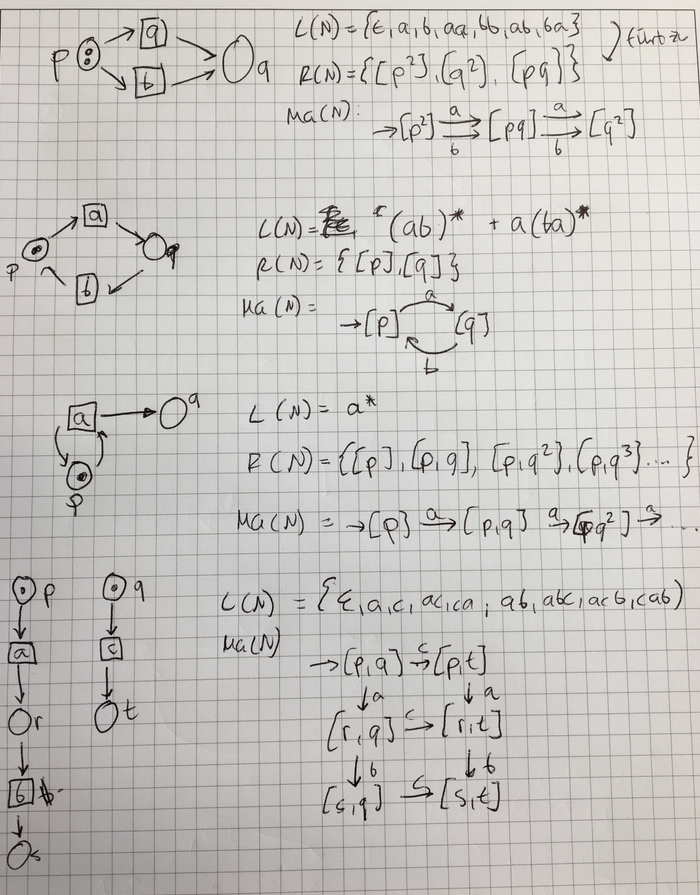 p a b q
L(N) = {ε, a, b, aa, bb, ab, ba}
R(N) = {[p²], [q²], [pq]}
Ma(N):
→[p²] a b [pq] a b [q²]
p a q b
L(N) = (ab)* + a(ba)*
R(N) = {[p], [q]}
Ma(N) =
→[p] a [q] b
a q p
L(N) = a*
R(N) = {[p], [p,q], [p,q²], [p,q³] .... }
Ma(N) = →[p] a→ [p,q] a→ [pq²] a→ ...
p q
a c
r t
b
s
L(N) = {ε, a, c, ac, ca, ab, abc, acb, cab)
Ma(N)
→[p,q] c→ [p,t]
↓a ↓a
[r,q] c→ [r,t]
↓b ↓b
[s,q] c→ [s,t]